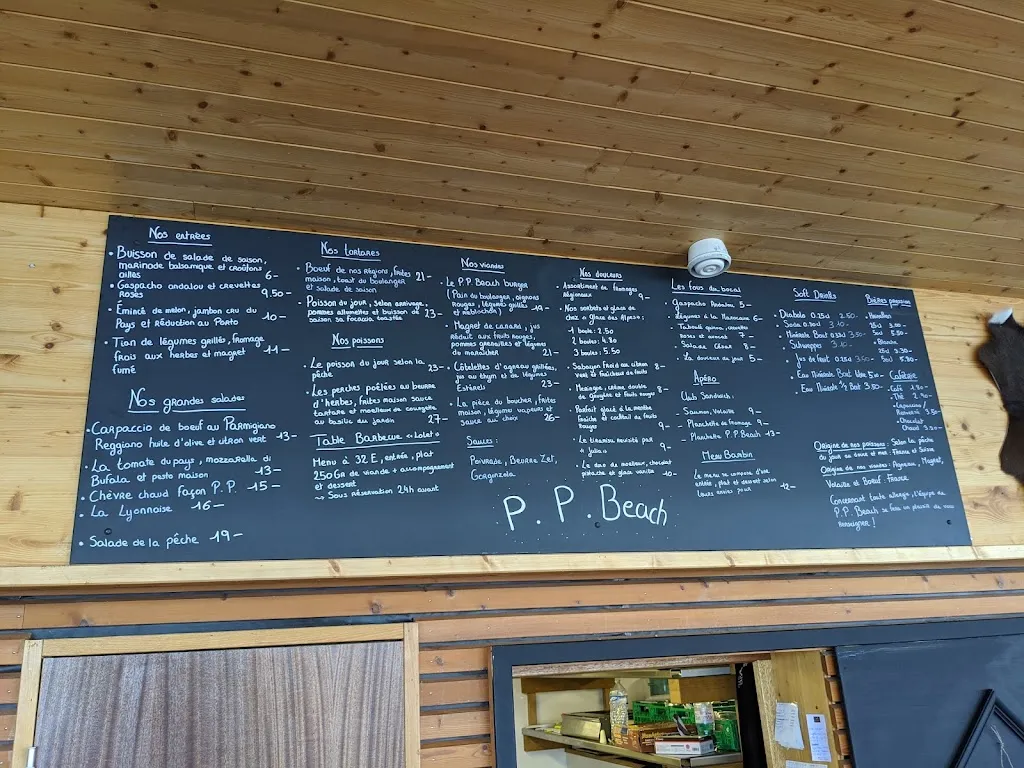 Nos entrées
• Buisson de salade de saison,
marinade balsamique et croûtons
aillés 6-
• Gaspacho andalou et crevettes
Roses 9.50-
• Émincé de melon, jambon cru du
Pays et réduction au Porto 10-
• Tian de légumes grillés, fromage
frais aux herbes et magret 11-
fumé
Nos grandes salades
• Carpaccio de boeuf au Parmigiano
Reggiano huile d'olive et citron vert 13-
• La tomate du pays, mozzarella di
Bufala et pesto maison 13-
• Chèvre chaud façon P.P. 15-
• La Lyonnaise 16-
• Salade de la pêche 19-
Nos tartares
• Boeuf de nos régions, frites 21-
maison, toast du boulanger
et salade de saison
• Poisson du jour, selon arrivage,
pommes allumettes et buisson de 23-
saison sa focacia toastée
Nos poissons
• Le poisson du jour selon la 23-
pêche
• Les perches poêlées au beurre
d'herbes, frites maison sauce
tartare et moelleux de courgette
au basilic du jardin 27-
Table Barbecue "Lolet"
Menu à 32 E, entrée, plat
250Gr de viande + accompagnement
et dessert
Sous réservation 24h avant
Nos viandes
• Le P.P. Beach burger
(Pain du boulanger, oignons
Rouges, légumes grillés 19-
et reblochon)
• Magret de canard, jus
Réduit aux fruits rouges,
pommes grenailles et légumes
du maraîcher 21-
• Côtelettes d'agneau grillées,
jus au thym et de légumes
Esterels 23-
• La pièce du boucher, frites
maison, légumes vapeurs et
sauce au choix 26-
Sauces :
Poivrade, Beurre Zef,
Gorgonzola.
P.P. Beach
Nos douceurs
• Assortiment de fromages
Régionaux 9-
• Nos sorbets et glaces de
chez « glace des Alpes » :
1 boule : 2.50
2 boules : 4.80
3 boules : 5.50
• Sabayon froid au citron
vert et fraîcheur de fruits 8-
• Meringue, crème double
de gruyère et fruits rouges 8-
• Parfait glacé à la menthe
fraîche et cocktail de fruits
Rouges 9-
• Le tiramisu revisité par
« Julia » 9-
chocolat
pistache et glace vanille 10-
Les fous du bocal
• Gaspacho Andalou 5-
• Légumes à la Marocaine 6-
• Taboulé quinoa, crevettes
roses et avocat 7-
• Salade César 8-
• La douceur du jour 5-
Apéro
Club Sandwich :
- Saumon, Volaille 9-
- Planchette de fromage 9-
- Planchette P.P. Beach 13-
Menu Bambin
Le menu se compose d'une
entrée, plat et dessert selon
leurs envies pour 12-
Soft Drinks
• Diabolo 0.25cl 2.50-
• Soda 0.20cl 3.10-
• Minérale Bout 0.33cl 3.50-
• Schweppes 3.10
• Jus de fruit 0.25cl 3.50-
• Eau Minérale Bout Verre 5.00-
• Eau Minérale 1/2 Bout 3.50-
Bières pression
25cl 3.-
50cl 5.50-
• Blanche
25cl 3.50-
50cl 5.90-
Caféterie
• Café 1.50-
• Thé 2.50-
• Capuccino /
Renversé 3.50-
• Chocolat
Chaud 3.50-
Origine de nos poissons : Selon la pêche
du jour sa truite et mer : France et Suisse
Origine de nos viandes : Agneau, Magret,
Volaille et Boeuf : France
Concernant toute allergie, l'équipe de
P.P. Beach se fera un plaisir de vous
renseigner !